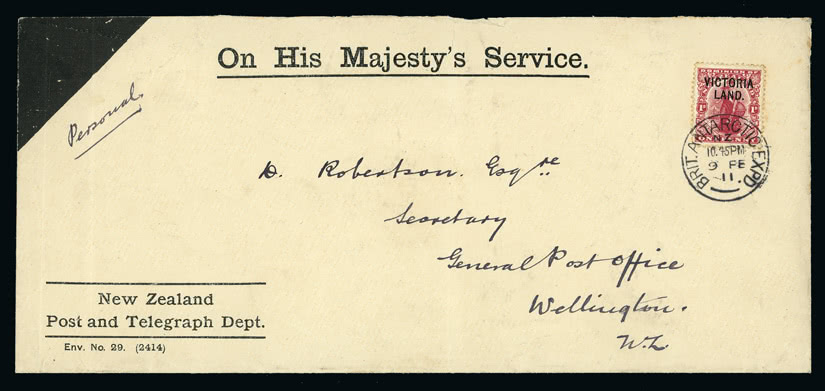 On His Majesty's Service.
Personal
VICTORIA
LAND.
BRIT. ANTARCTIC EXPD
N.Z.
10.45PM
9 FE
11.
D. Robertson. Esqre
Secretary
General Post Office
Wellington.
N.Z.
New Zealand
Post and Telegraph Dept.
Env. No. 29. (2414)